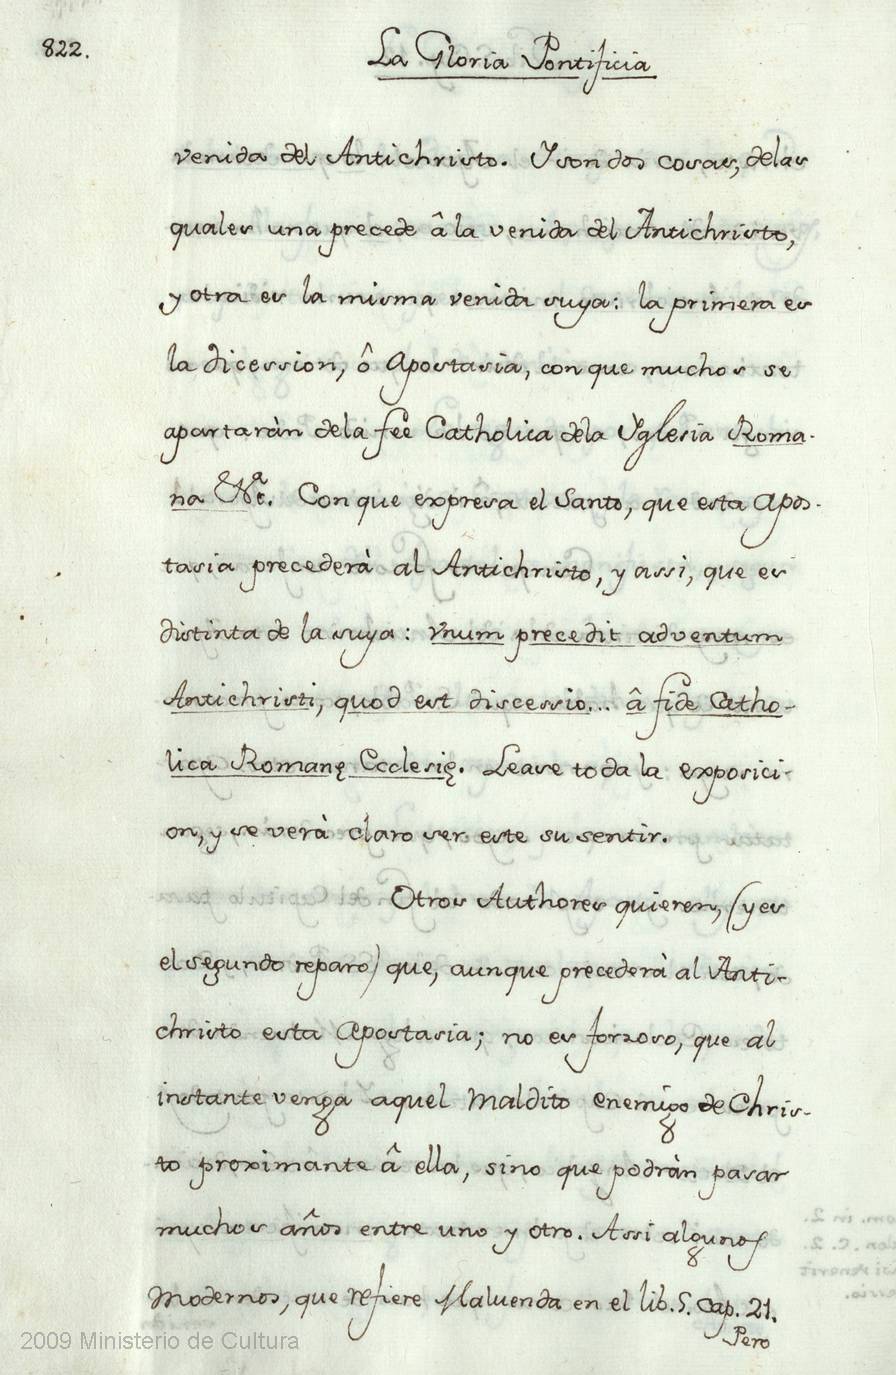 822.
La Gloria Pontificia
venida del Antichristo. Y son dos cosas, delas
quales una precede â la venida del Antichristo,
y otra es la misma venida suya: la primera es
la dicession, ô Apostasia, con que muchos se
apartaràn dela fee Catholica dela Yglesia Roma-
na &c. Con que expresa el Santo, que esta Apos-
tasia precederà al Antichristo, y assi, que es
distinta de la suya: Vnum precedit adventum
Antichristi, quod est discessio... â fide Catho-
lica Romanę Ecclesię. Lease toda la exposici-
on, y se verà claro ser este su sentir.
Otros Authores quieren, (y es
el segundo reparo) que, aunque precederà al Anti-
christo esta Apostasia; no es forzoso, que al
instante venga aquel Maldito enemigo de Chris-
to proximante â ella, sino que podràn pasar
muchos años entre uno y otro. Assi algunos
Modernos, que refiere Maluenda en el lib. 5. Cap. 21.
Pero
2009 Ministerio de Cultura